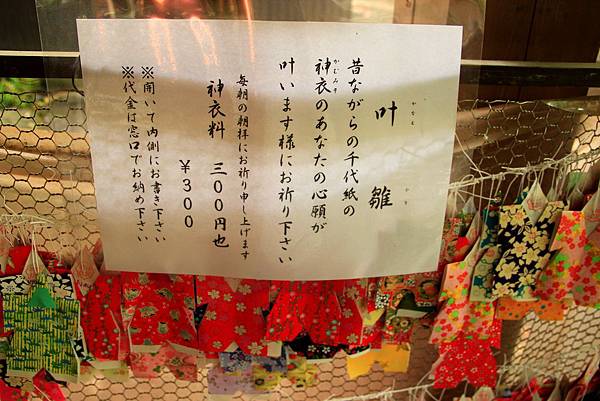 叶雛
かなえ
ひな
昔ながらの千代紙の
神衣のあなたの心願が
かむみそ
叶います様にお祈り下さい
毎朝の朝拝にお祈り申し上げます
神衣料 三〇〇円也
￥300
※開いて内側にお書き下さい
※代金は窓口でお納め下さい